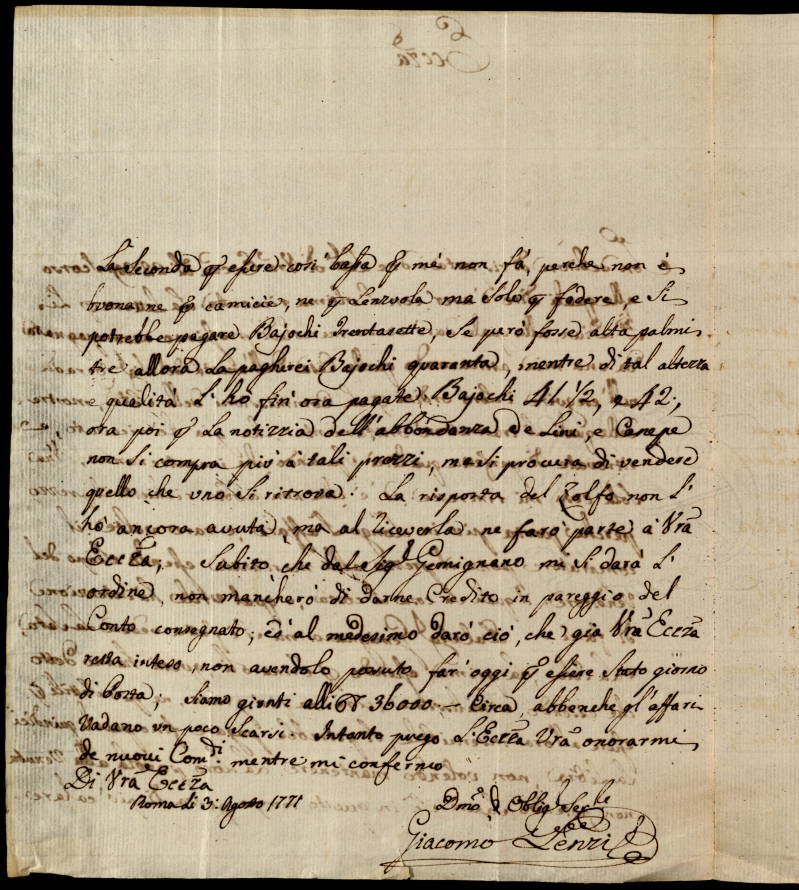 La Seconda p. essere così bassa p. mè non fà, perche non è
buona ne p. camicie, ne p. Lenzuola ma Solo p. fodere, e Si
potrebbe pagare Bajochi trentasette, Se però fosse alta palmi
tre allora La pagherei Bajochi quaranta, mentre di tal altezza
e qualità L' hò fin' ora pagate Bajochi 41 1/2, e 42.,
ora poi p. La notizzia dell' abbondanza de Lini, e Canepe
non Si compra più à tali prezzi, ma si procura di vendere
quello che uno Si ritrova. La risposta del Zolfo non L'
hò ancora avuta, ma al riceverla ne farò parte à Vrà
Eccza; Subito che dal Sigr Gemignano mi Si darà L'
ordine, non mancherò di darne Credito in pareggio del
Conto consegnato; ed al medesimo darò ciò, che già Vrà Eccza
resta inteso, non avendolo possuto far' oggi p. essere Stato giorno
di Posta; Siamo giunti alli 36000 — Circa, abbenche gl' affari
Vadano un poco Scarsi. Intanto prego L' Eccza Vrà onorarmi
de nuovi Comdi. mentre mi confermo
Di Vrà Eccza
Roma Li 3: Agosto 1771
Dmo, Obligo Serle
Giacomo Lenzi